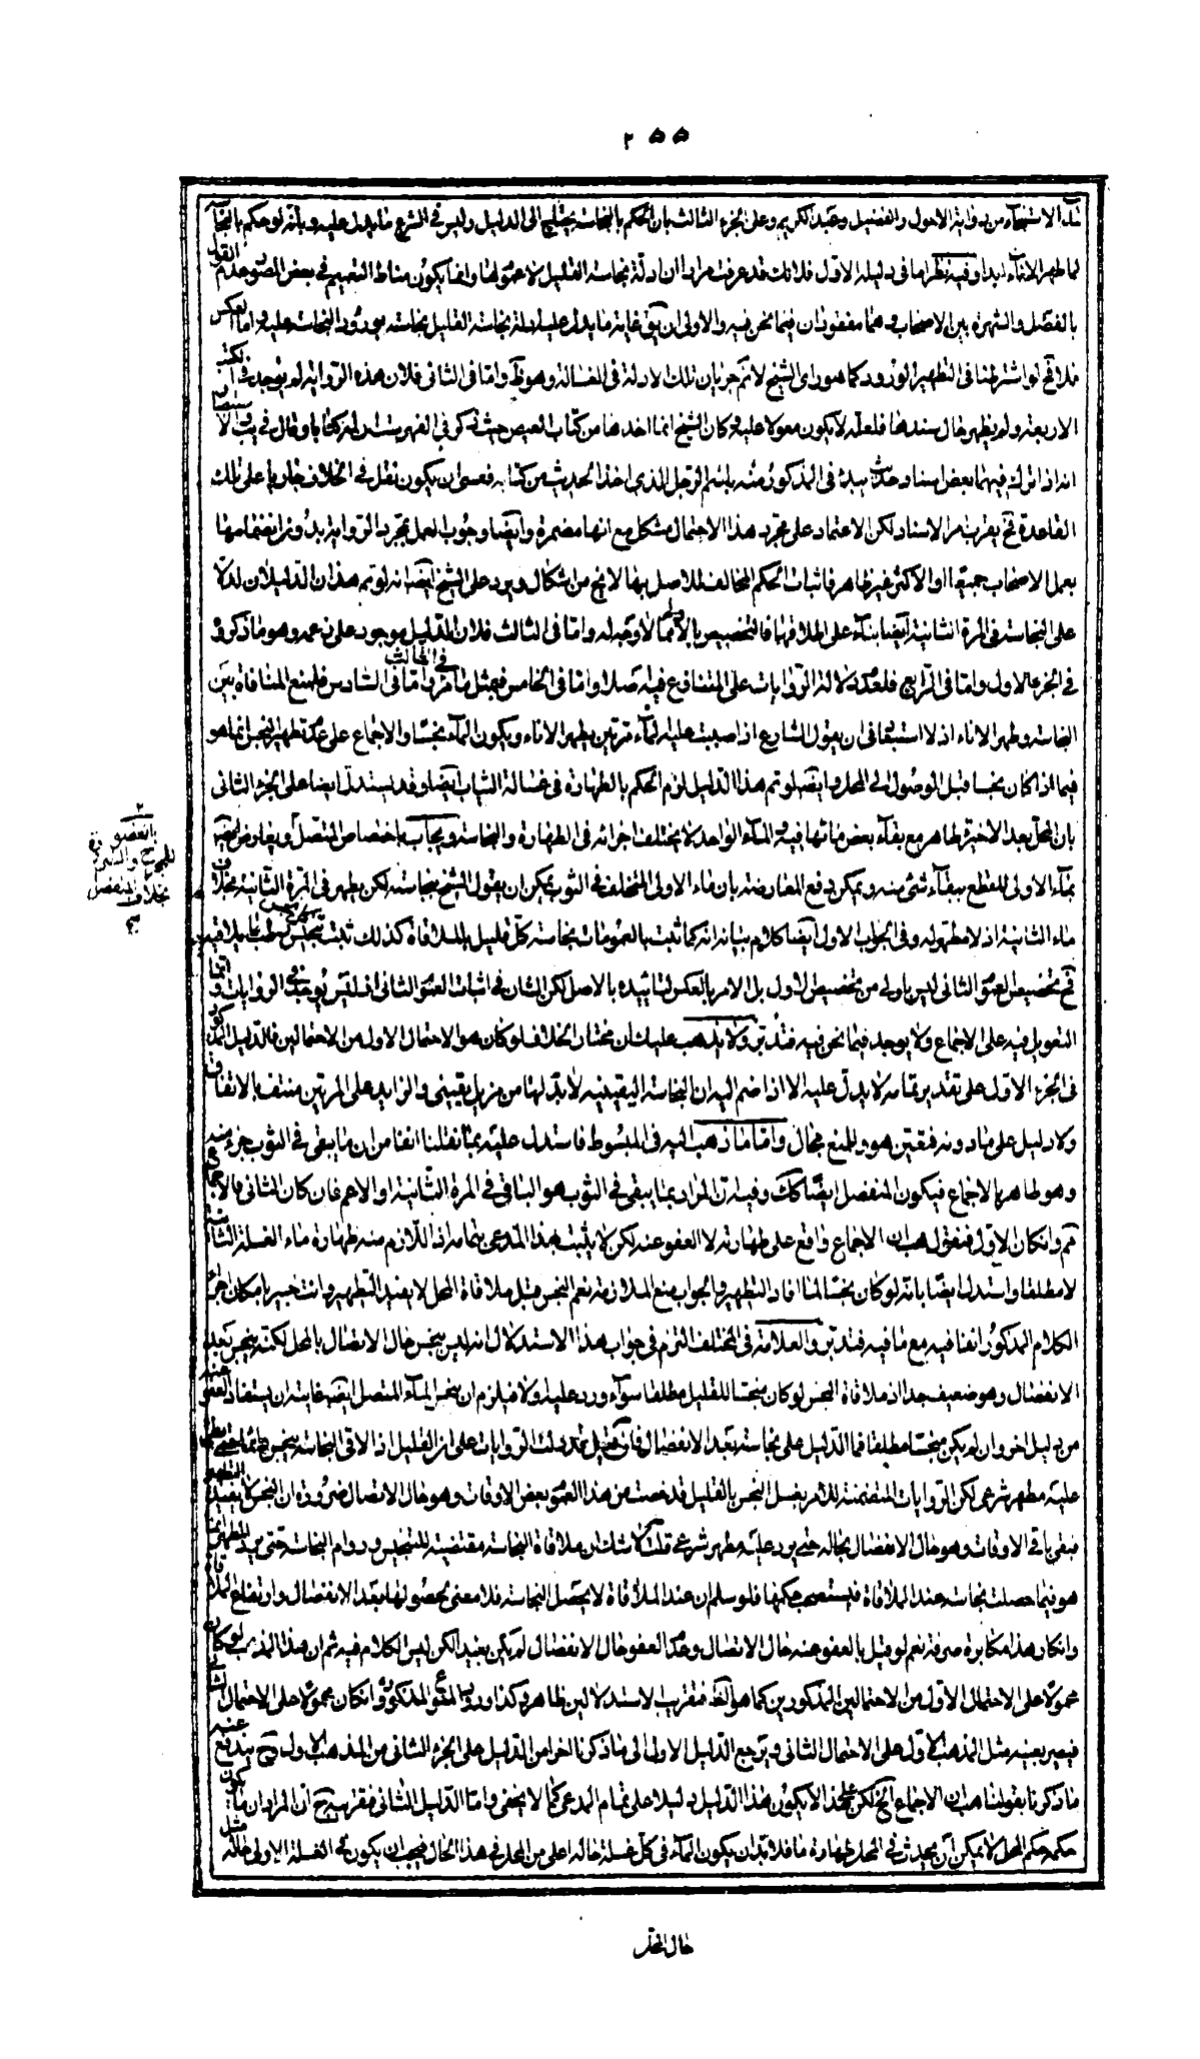 ٢٥٥
الاستنجاء من رواية الاحول والفضيل وعبد الكريم وعلى الجزء الثالث بان الحكم بالنجاسة يحتاج الى الدليل وليس في الشرع ما يدل عليه وبانه لو حكم بالنجاسة
لما طهر الاناء ابدا وفيه نظر اما في دليله الاول فلانك قد عرفت مرارا ان ادلة نجاسة القليل لا عموم لها وانما يكون مناط التعميم في بعض الصور عدم القول
بالفصل والشهرة بين الاصحاب وهما مفقودان فيما نحن فيه والاولى ان يق غاية ما يدل عليه ادلة نجاسة القليل نجاسته بورود النجاسة عليه واما العكس
فلا فح لو اشترطنا في التطهير الورود كما هو راى الشيخ لا تم جريان تلك الادلة في الغسالة وهو ظ واما في الثاني فلان هذه الرواية لم يوجد في الكتب
الاربعة ولم يظهر حال سندها فلعله لا يكون معولا عليه وكان الشيخ انما اخذها من كتاب العيص حيث ذكر في الفهرست ان له كتابا وقال في الاستبصار
انه اذا ترك فيهما بعض اسناد حديث يبدء في المذكور منه باسم الرجل الذي اخذ الحديث من كتابه فعسى ان يكون نقل في الخلاف جاريا على تلك
القاعدة فح يقرب من الاسناد لكن الاعتماد على مجرد هذا الاحتمال مشكل مع انها مضمرة وايضا وجوب العمل بمجرد الرواية بدون انضمامها
بعمل الاصحاب جميعا او الاكثر غير ظاهر فاثبات الحكم المخالف للاصل بها لا يخ من اشكال ويرد على الشيخ ايضا انه لو تم هذان الدليلان لدلا
على النجاسة في المرة الثانية ايضا بناء على اطلاقهما فالتخصيص بالاولى مما لا وجه له واما في الثالث فلان الدليل موجود على زعمه وهو ما ذكره
في الجزء الاول واما في الرابع فلعدم دلالة الروايات على المتنازع فيه اصلا واما في الخامس فبمثل ما مر في الثالث واما في السادس فلمنع المنافاة بين
النجاسة وطهر الاناء اذ لا استبعاد في ان يقول الشارع اذا صببت عليه الماء مرتين يطهر الاناء ويكون الماء نجسا والاجماع على عدم تطهير النجس انما هو
فيما اذا كان نجسا قبل الوصول الى المحل وايضا لو تم هذا الدليل لزم الحكم بالطهارة في غسالة الثياب ايضا وقد يستدل ايضا على الجزء الثاني
بان المحل بعد الاخيرة طاهر مع بقاء بعض مائها فيه والماء الواحد لا يختلف اجزائه في الطهارة والنجاسة ويجاب باختصاص المتصل ويعارض ايضا
بماء الاولى للقطع ببقاء شئ منه ويمكن دفع المعارضة بان ماء الاولى المتخلف في الثوب يمكن ان يقول الشيخ بنجاسته لكن يطهر في المرة الثانية بخلاف
ماء الثانية اذ لا مطهر له وفي الجواب الاول ايضا كلام بيانه انه كما ثبت بالعمومات نجاسة كل قليل بالملاقاة كذلك ثبت
فح تخصيص العموم الثاني ليس باولى من تخصيص الاول بل الامر بالعكس لتاييده بالاصل لكن الشان في اثبات العموم الثاني
التعويل فيه على الاجماع ولا يوجد فيما نحن فيه فتدبر ولا يذهب عليك ان مختار الخلاف لو كان هو الاحتمال الاول من الاحتمالين فالدليل المذكور
في الجزء الاول على تقدير تمامه لا يدل عليه الا اذا ضم اليه ان النجاسة اليقينية لا بد لها من مزيل يقيني والزايد على المرتين منتف بالاتفاق
ولا دليل على ما دونه فتعين هو وللمنع مجال واما ما ذهب اليه في المبسوط فاستدل عليه بما نقلنا انفا من ان ما يبقى في الثوب جزء منه
وهو طاهر بالاجماع فيكون المنفصل ايضا كك وفيه ان المراد بما يبقى في الثوب هو الباقي في المرة الثانية او الاعم فان كان الثاني فالاجماع
مم وان كان الاول فنقول هب ان الاجماع واقع على طهارته لا العفو عنه لكن لا يثبت هذا المدعى بتمامه اذ اللازم منه طهارة ماء الغسلة الثانية
لا مطلقا واستدل ايضا بانه لو كان نجسا لما افاد التطهير والجواب منع الملازمة نعم النجس قبل ملاقاة المحل لا يفيد التطهير وانت خبير بامكان اجراء
الكلام المذكور انفا فيه مع ما فيه فتدبر والعلامة في المختلف التزم في جواب هذا الاستدلال انه ليس بنجس حال الاتصال بالمحل لكنه ينجس بعد
الانفصال وهو ضعيف جدا اذ ملاقاة النجس لو كان منجسا للقليل مطلقا سواء ورد عليه اولا فيلزم ان ينجس الماء المتصل ايضا غايته ان يستفاد العفو عنه
من دليل اخر وان لم يكن منجسا مطلقا فما الدليل على نجاسته بعد الانفصال فان قيل قد دلت الروايات على ان القليل اذا لاقى النجاسة ينجس
عليه مطهر شرعي لكن الروايات المتضمنة للامر بغسل النجس بالقليل قد خصت من هذا العموم بعض الاوقات وهو حال الاتصال ضرورة ان النجس لا يفيد التطهير
فبقي باقي الاوقات وهو حال الانفصال بحاله حتى يرد عليه مطهر شرعي قلت لا شك ان ملاقاة النجاسة مقتضية للتنجيس ودوام النجاسة حتى يرد المطهر انما
هو فيما حصلت نجاسته عند الملاقاة فيستصحب حكمها فلو سلم ان عند الملاقاة لا يحصل النجاسة فلا معنى لحصولها بعد الانفصال وارتفاع الملاقاة
وانكار هذا مكابرة صرفة نعم لو قيل بالعفو عنه حال الاتصال وعدم العفو حال الانفصال لم يكن بعيدا لكن ليس الكلام فيه ثم ان هذا المذهب لو كان
محمولا على الاحتمال الاول من الاحتمالين المذكورين كما هو الظ فتقريب الاستدلالين ظاهر وكذا ورود المنع المذكور وان كان محمولا على الاحتمال الثاني
فيصير بعينه مثل المذهب الاول على الاحتمال الثاني ويرجع الدليل الاول الى ما ذكرنا اخرا من الدليل على الجزء الثاني من المذهب الاول وح يندفع عنه
ما ذكرنا بقولنا هب ان الاجماع الخ لكن على هذا لا يكون هذا الدليل دليلا على تمام المدعى كما لا يخفى واما الدليل الثاني فتقريبه ح ان المراد ان ما يكون
حكمه حكم المحل لا يمكن ان يحدث في المحل طهارة ما فلا بد ان يكون الماء في كل غسلة حاله اعلى من المحل في هذا الحال فيجب ان يكون في الغسلة الاولى حاله مثل
حال المحل
بخلاف المنفصل